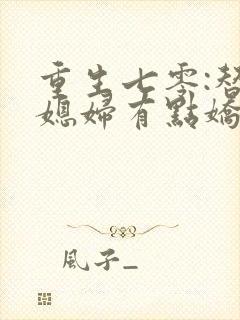 重生七零:替
媳婦有點嬌
風子_